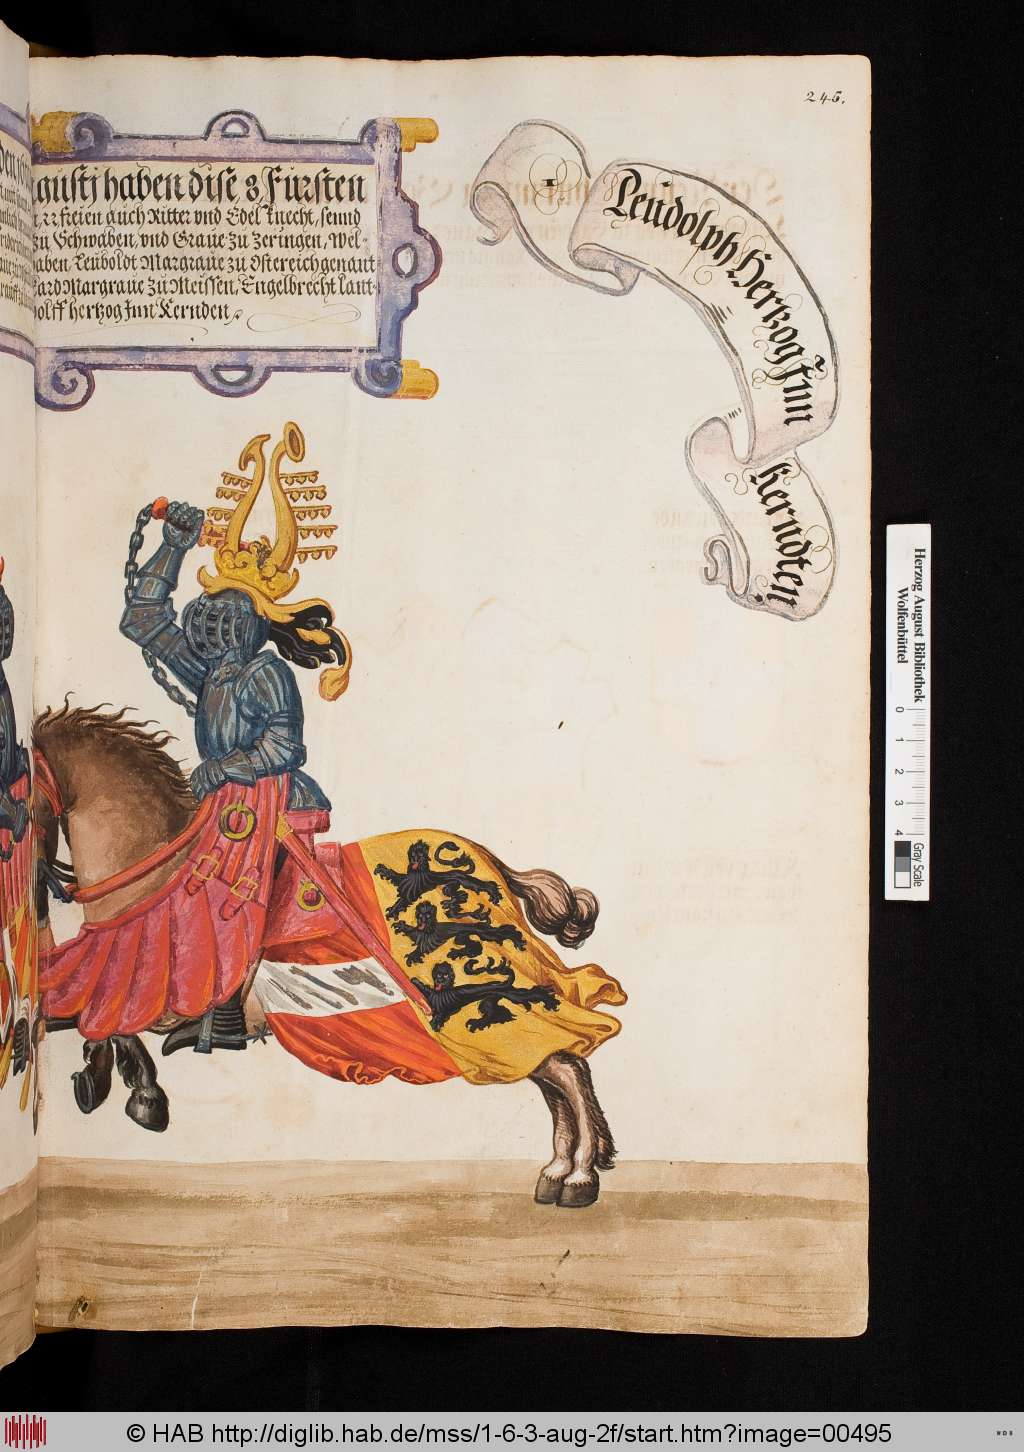 245.
gustj haben dise 8 Fürsten
22 freien auch Ritter vnd Edel knecht, sennd
zu Schwaben, vnd Graue zu zeringen, Wel-
aben, Leuboldt Margraue zu Ostereich genant
kard Margraue zu Meissen, Engelbrecht Lant-
olff hertzog Inn Kernden
1
Leudolph Hertzog Inn
Kerndten
Herzog August Bibliothek
Wolfenbüttel
0 1 2 3 4
Gray Scale
© HAB http://diglib.hab.de/mss/1-6-3-aug-2f/start.htm?image=00495